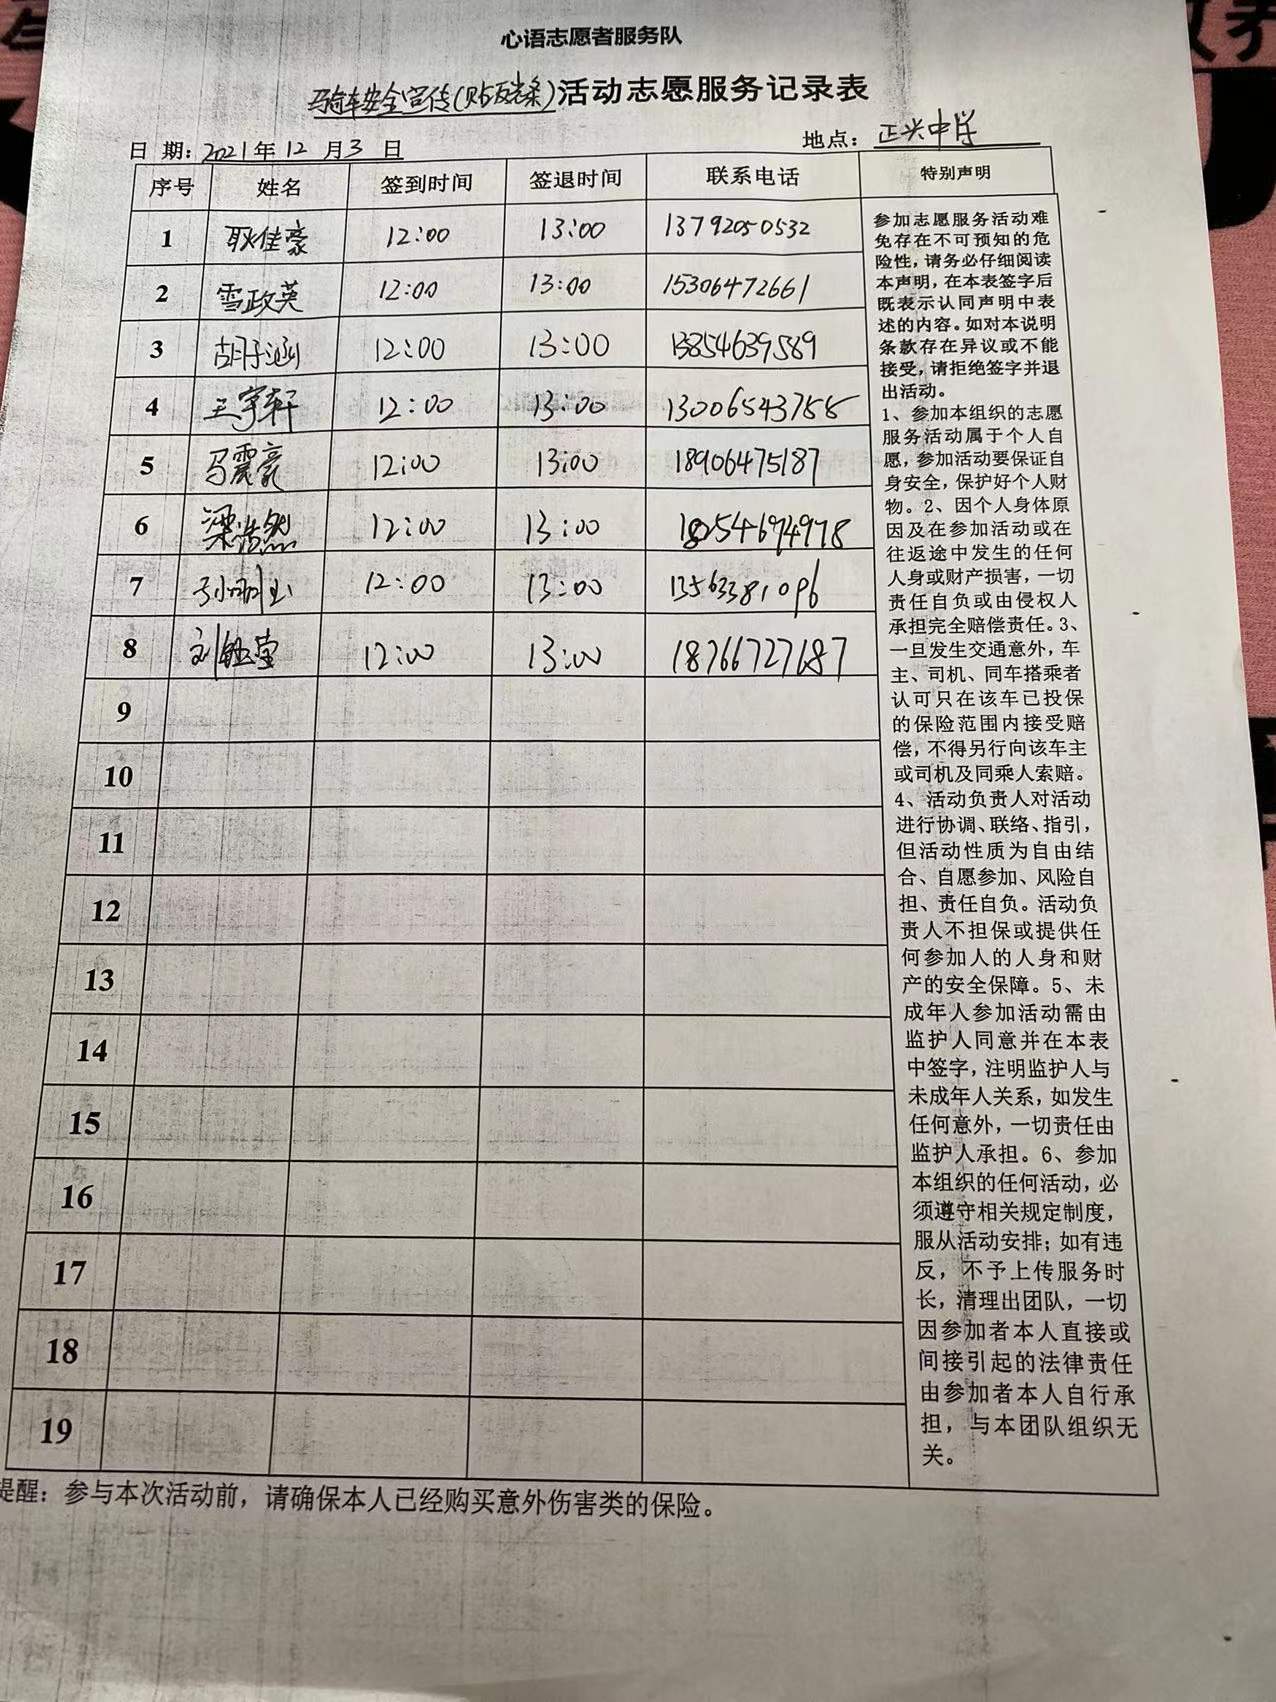 心语志愿者服务队
骑车安全宣传(贴反光条)活动志愿服务记录表
日 期: 2021年 12 月 3 日
地点: 正兴中学
序号 姓名 签到时间 签退时间 联系电话 特别声明
1 耿佳豪 12:00 13:00 13792050532
2 雪政英 12:00 13:00 15306472661
3 胡子涵 12:00 13:00 13854639589
4 王宇轩 12:00 13:00
5 马震豪 12:00 13:00 18906475187
6 梁浩然 12:00 13:00 18254694978
7 孙明玉 12:00 13:00 13563381096
8 刘钰莹 12:00 13:00 18766727187
9
10
11
12
13
14
15
16
17
18
19
参加志愿服务活动难
免存在不可预知的危
险性,请务必仔细阅读
本声明,在本表签字后
既表示认同声明中表
述的内容。如对本说明
条款存在异议或不能
接受,请拒绝签字并退
出活动。
1、参加本组织的志愿
服务活动属于个人自
愿,参加活动要保证自
身安全,保护好个人财
物。2、因个人身体原
因及在参加活动或在
往返途中发生的任何
人身或财产损害,一切
责任自负或由侵权人
承担完全赔偿责任。3、
一旦发生交通意外,车
主、司机、同车搭乘者
认可只在该车已投保
的保险范围内接受赔
偿,不得另行向该车主
或司机及同乘人索赔。
4、活动负责人对活动
进行协调、联络、指引,
但活动性质为自由结
合、自愿参加、风险自
担、责任自负。活动负
责人不担保或提供任
何参加人的人身和财
产的安全保障。5、未
成年人参加活动需由
监护人同意并在本表
中签字,注明监护人与
未成年人关系,如发生
任何意外,一切责任由
监护人承担。6、参加
本组织的任何活动,必
须遵守相关规定制度,
服从活动安排;如有违
反,不予上传服务时
长,清理出团队,一切
因参加者本人直接或
间接引起的法律责任
由参加者本人自行承
担,与本团队组织无
关。
提醒:参与本次活动前,请确保本人已经购买意外伤害类的保险。